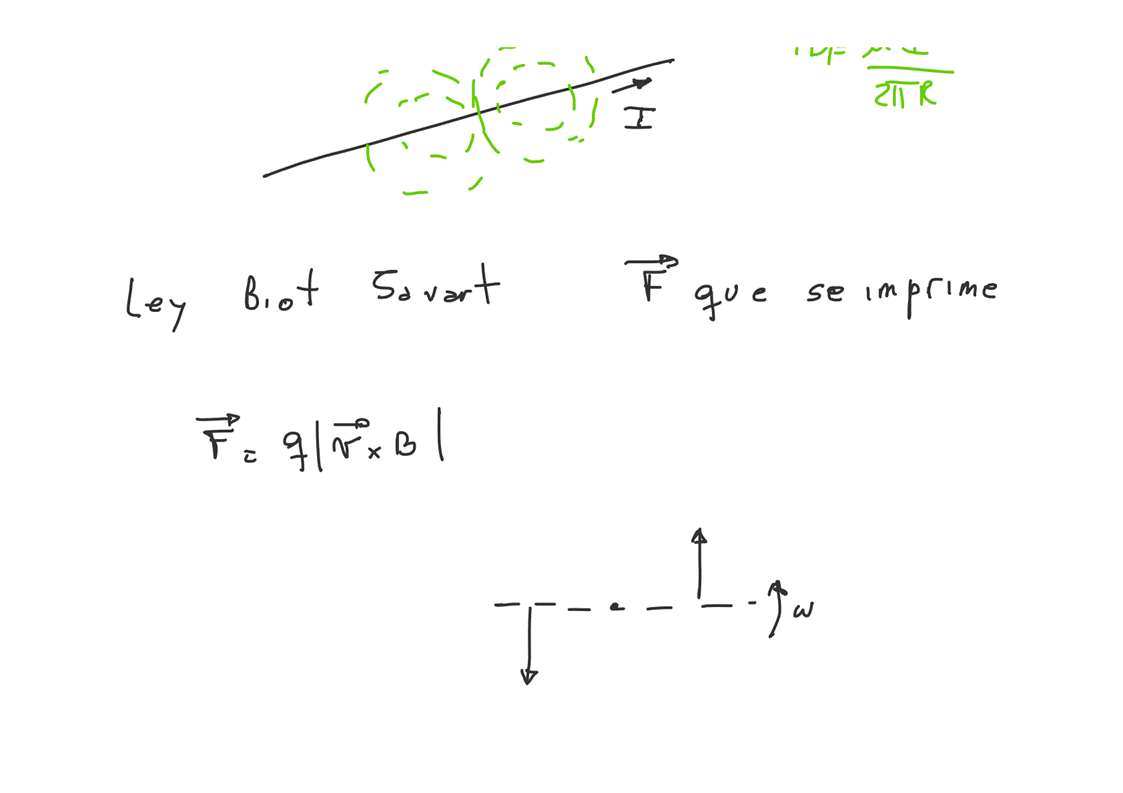 2πR
I
Ley Biot Savart
F que se imprime
F = q|v × B|
ω